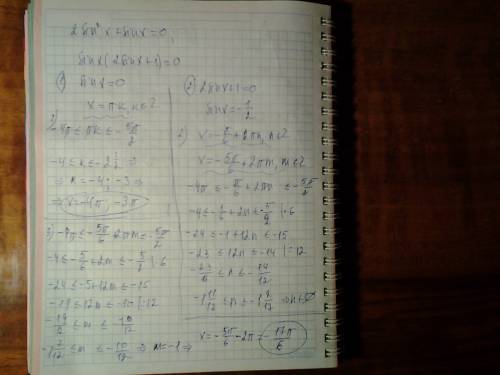 2 sin² x + sin x = 0,
sin x (2 sin x + 1) = 0
1) sin x = 0
x = πk, k ∈ Z
1) -4π ≤ πk ≤ -5π/2
-4 ≤ k ≤ -2 1/2 ⇒
⇒ k = -4; -3 ⇒
⇒ x = -4π, -3π
3) -4π ≤ -5π/6 + 2πm ≤ -5π/2
-4 ≤ -5/6 + 2m ≤ -5/2 | ·6
-24 ≤ -5 + 12m ≤ -15
-19 ≤ 12m ≤ -10 | :12
-19/12 ≤ m ≤ -10/12
-1 7/12 ≤ m ≤ -10/12 ⇒ m = -1 ⇒
2) 2 sin x + 1 = 0
sin x = -1/2
2) x = -π/6 + 2πn, n ∈ Z
x = -5π/6 + 2πm, m ∈ Z
-4π ≤ -π/6 + 2πn ≤ -5π/2
-4 ≤ -1/6 + 2n ≤ -5/2 | ·6
-24 ≤ -1 + 12n ≤ -15
-23 ≤ 12n ≤ -14 | :12
-23/12 ≤ n ≤ -14/12
-1 11/12 ≤ n ≤ -1 2/12 ⇒ n ∈ ∅
x = -5π/6 - 2π = -17π/6